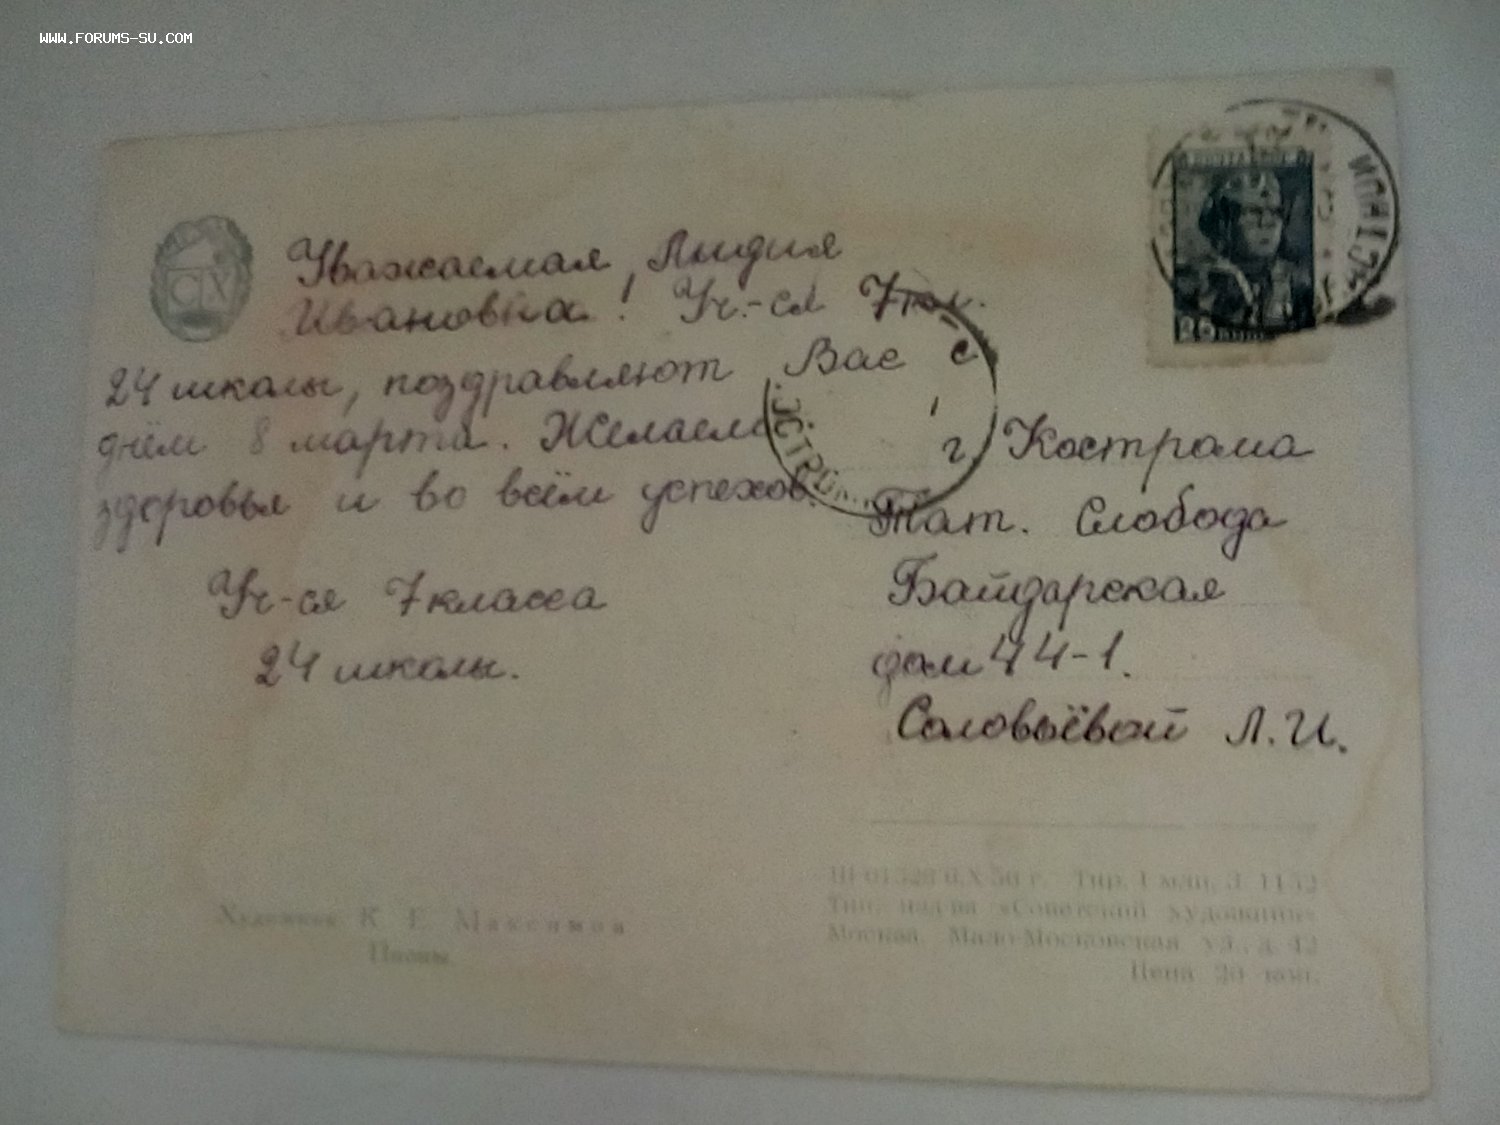 WWW.FORUMS-SU.COM
Уважаемая Лидия
Ивановна! Уч.-ся 7го кл.
24 школы, поздравляют Вас с
днём 8 марта. Желаем
здоровья и во всём успехов.
Уч-ся 7 класса
24 школы.
г. Кострома
Тат. Слобода
Байдарская
дом 44-1.
Соловьёвой Л.И.
Художник К. Е. Максимов
Пионы.
Тир. 1 млн. З. 1152
Тип. изд-ва «Советский художник»
Москва, Мало-Московская ул., д. 42
Цена 20 коп.